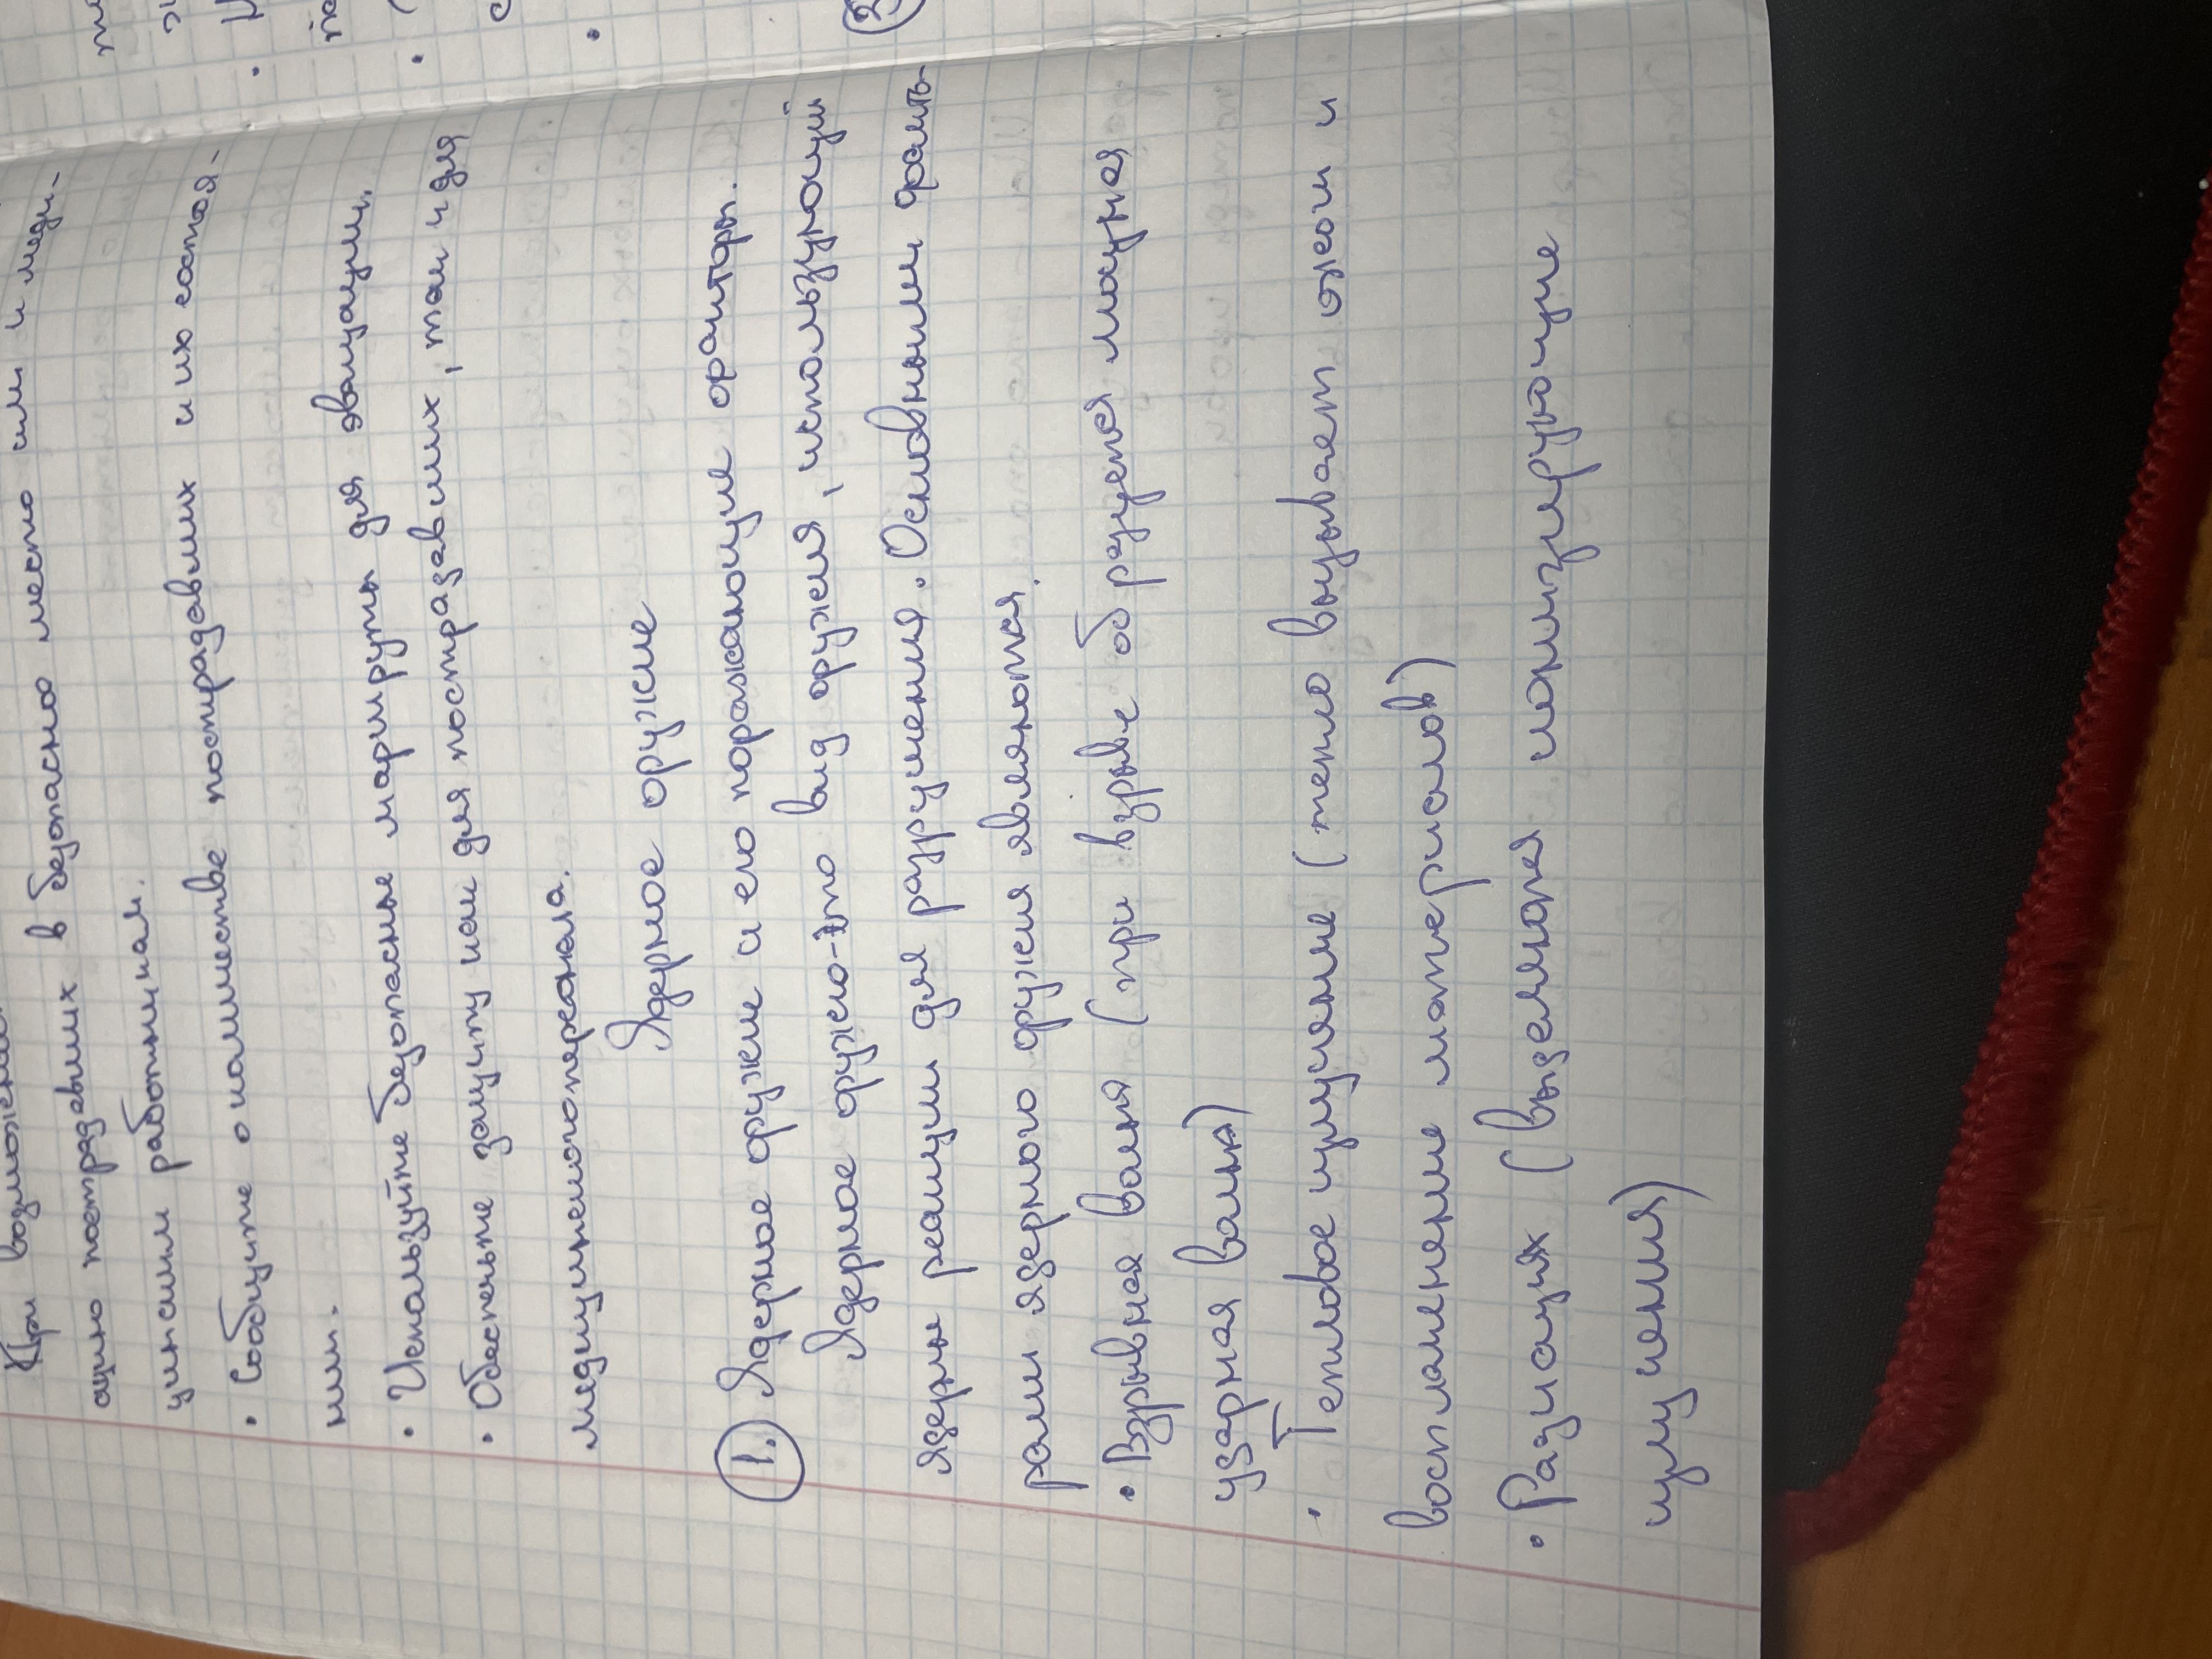 При возможн
ацию пострадавших в безопасное место или к меди-
цинским работникам.
• Сообщите о количестве пострадавших и их состоя-
нии.
• Используйте безопасные маршруты для эвакуации.
• Обеспечьте защиту как для пострадавших, так и для
медицинскогоперсонала.
Ядерное оружие
1. Ядерное оружие и его поражающие факторы.
Ядерное оружие-это вид оружия, использующий
ядерные реакции для разрушения. Основными факто-
рами ядерного оружия являются.
• Взрывная волна (при взрыве образуется мощная
ударная волна)
• Тепловое излучение (тепло вызывает ожоги и
воспламенение материалов)
• Радиация (выделяются ионизирующие
излучения)